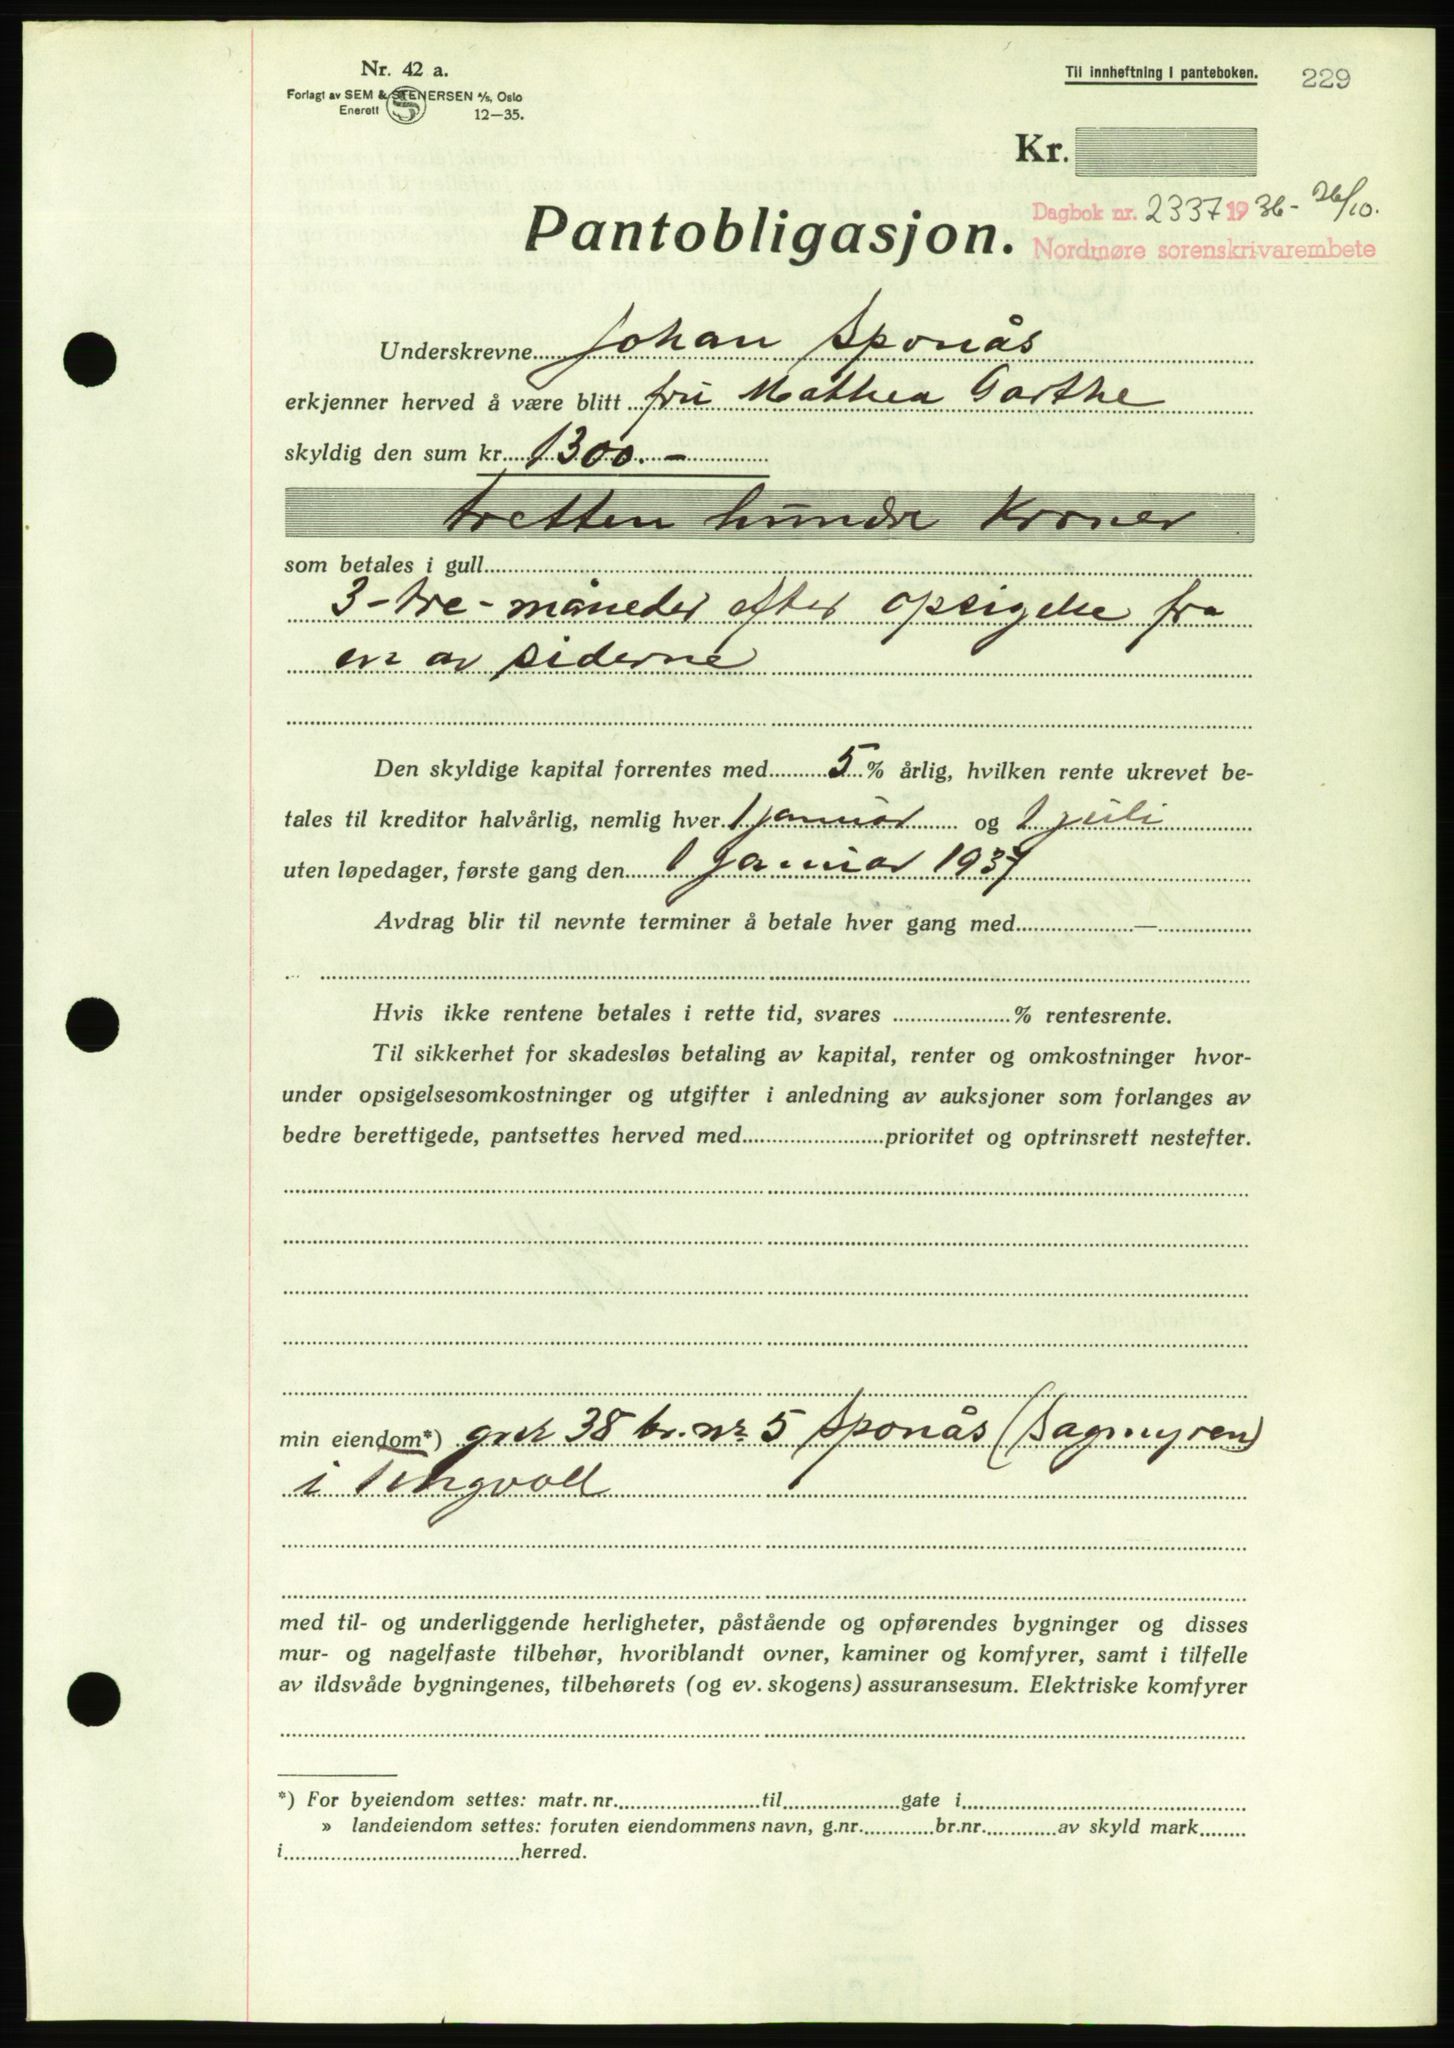 Nr. 42 a.
Forlagt av SEM & STENERSEN A/S, Oslo
Enerett 12—35.
Til innheftning i panteboken.
229
Kr.
Dagbok nr. 2337 1936 - 26/10.
Nordmøre sorenskrivarembete
Pantobligasjon.
Underskrevne Johan Sponås
erkjenner herved å være blitt fru Mathea Garthe
skyldig den sum kr. 1300.-
tretten hundre Kroner
som betales i gull
3-tre-måneder efter opsigelse fra
en av siderne
Den skyldige kapital forrentes med 5 % årlig, hvilken rente ukrevet be-
tales til kreditor halvårlig, nemlig hver 1 januar og 1 juli
uten løpedager, første gang den 1 januar 1937
Avdrag blir til nevnte terminer å betale hver gang med —
Hvis ikke rentene betales i rette tid, svares % rentesrente.
Til sikkerhet for skadesløs betaling av kapital, renter og omkostninger hvor-
under opsigelsesomkostninger og utgifter i anledning av auksjoner som forlanges av
bedre berettigede, pantsettes herved med prioritet og optrinsrett nestefter.
min eiendom*) gnr 38 br. nr. 5 Sponås (Sagmyren)
i Tingvoll
med til- og underliggende herligheter, påstående og opførendes bygninger og disses
mur- og nagelfaste tilbehør, hvoriblandt ovner, kaminer og komfyrer, samt i tilfelle
av ildsvåde bygningenes, tilbehørets (og ev. skogens) assuransesum. Elektriske komfyrer
*) For byeiendom settes: matr. nr. til gate i
» landeiendom settes: foruten eiendommens navn, g.nr. br.nr. av skyld mark
i herred.